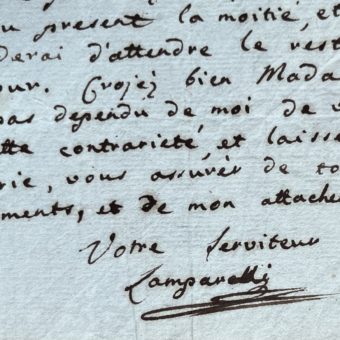 u present la moitié, et
derai d'attendre le rest
our. Crojéz bien Mada
pas dependu de moi de v
tte contrariété, et laisse
rie, vous assurér de to
ments, et de mon attache
Votre serviteur
Lamparelli